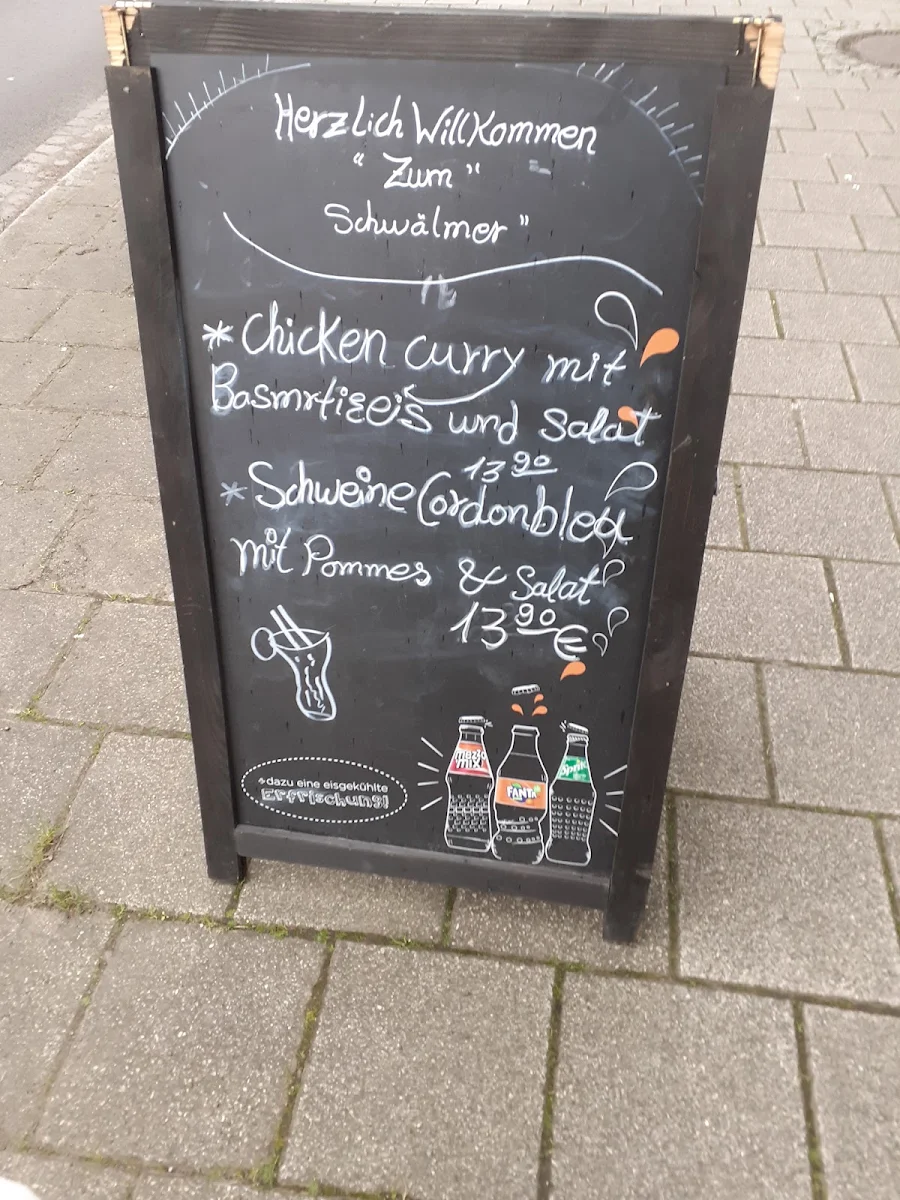 Herzlich Willkommen
"Zum"
Schwälmer"
* Chicken curry mit
Basmrtizeis und Salat
13 90
* Schweine Cordonbleu
mit Pommes & Salat
13 90 €
mezzo mix
FANTA
Sprite
*dazu eine eisgekühlte
Erfrischung!